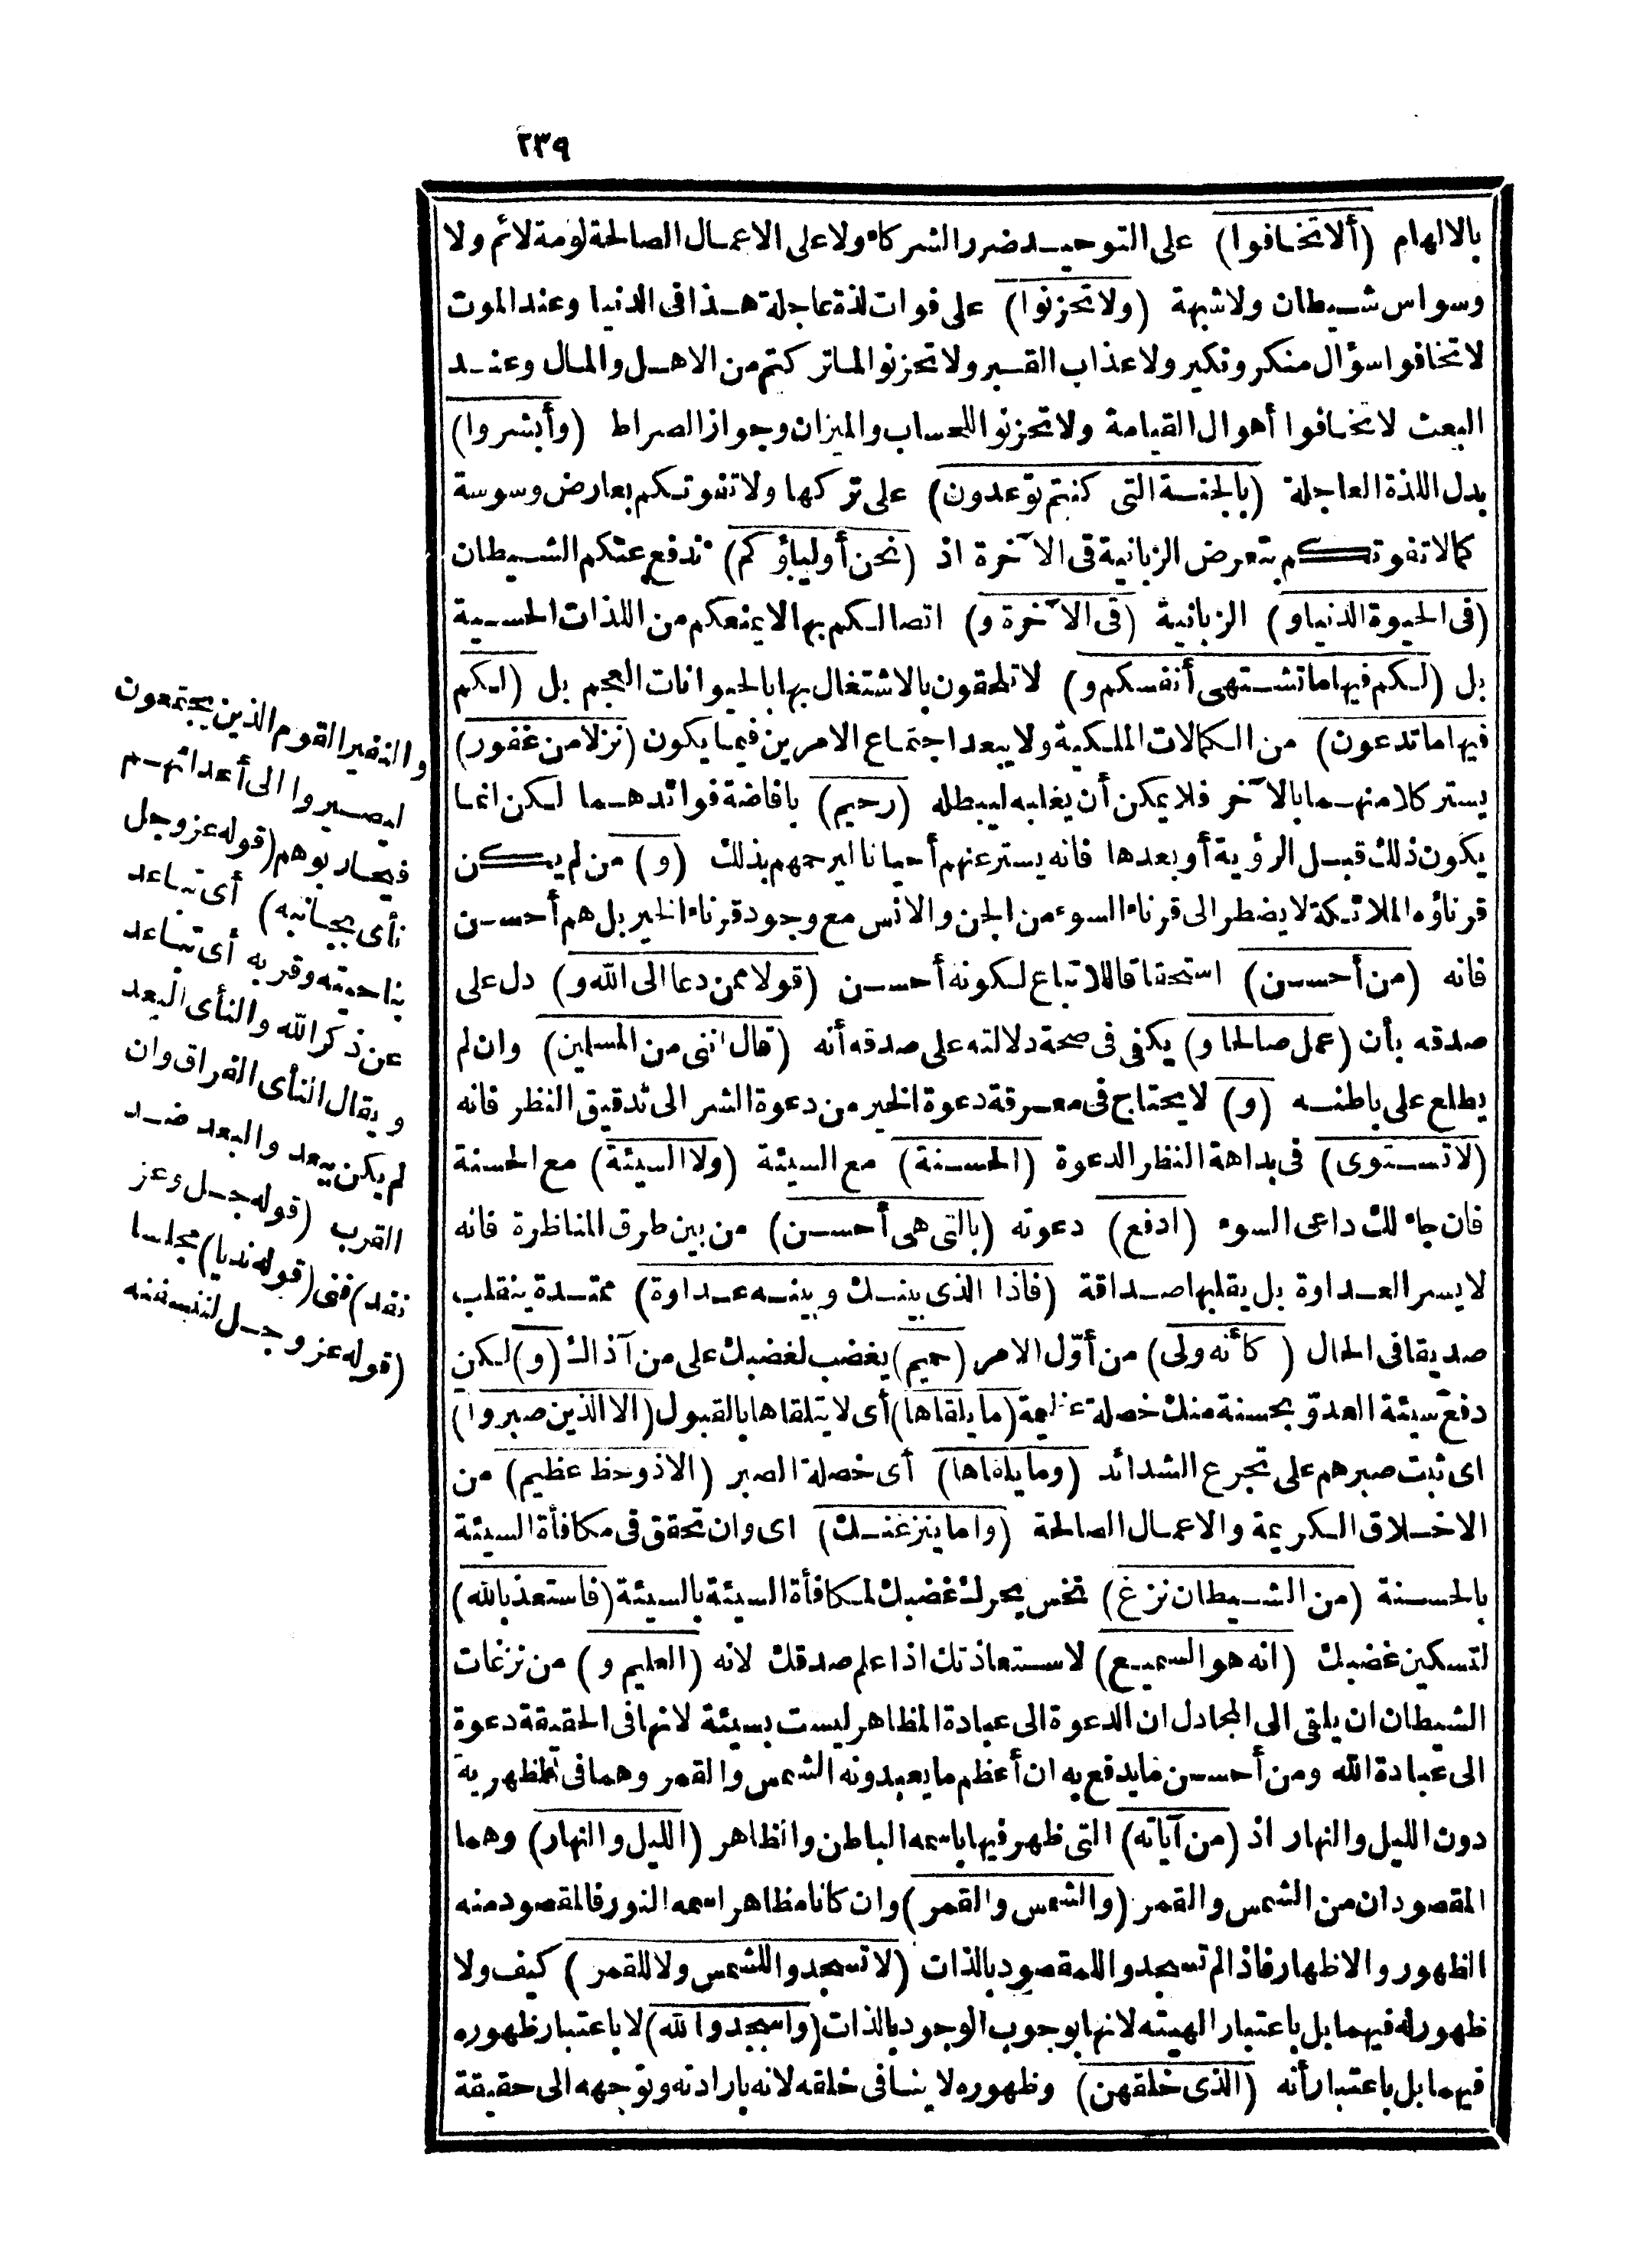 ٢٣٩
بالالهام (ألا تخافوا) على التوحيد ضرر الشركاء ولا على الاعمال الصالحة لومة لائم ولا
وسواس شيطان ولا شبهة (ولا تحزنوا) على فوات لذة عاجلة هذا فى الدنيا وعند الموت
لا تخافوا سؤال منكر ونكير ولا عذاب القبر ولا تحزنوا لما تركتم من الاهل والمال وعند
البعث لا تخافوا أهوال القيامة ولا تحزنوا للحساب والميزان وجواز الصراط (وأبشروا)
بدل اللذة العاجلة (بالجنة التى كنتم توعدون) على تركها ولا تفوتكم بعارض وسوسة
كما لا تفوتكم بتعرض الزبانية فى الآخرة اذ (نحن أولياؤكم) ندفع عنكم الشيطان
(فى الحيوة الدنيا و) الزبانية (فى الآخرة و) اتصالكم بها لا يمنعكم من اللذات الحسية
بل (لكم فيها ما تشتهى أنفسكم و) لا تلحقون بالاشتغال بها بالحيوانات العجم بل (لكم
فيها ما تدعون) من الكمالات الملكية ولا يبعد اجتماع الامرين فيما يكون (نزلا من غفور)
يستر كلا منهما بالآخر فلا يمكن أن يغلبه ليبطله (رحيم) بافاضة فوائدهما لكن انما
يكون ذلك قبل الرؤية أو بعدها فانه يستر عنهم أحيانا ليرحمهم بذلك (و) من لم يكن
قرناؤه الملائكة لا يضطر الى قرناء السوء من الجن والانس مع وجود قرناء الخير بل هم أحسن
فانه (من أحسن) استحقاقا للاتباع لكونه أحسن (قولا ممن دعا الى الله و) دل على
صدقه بأن (عمل صالحا و) يكفى فى صحة دلالته على صدقه أنه (قال اننى من المسلمين) وان لم
يطلع على باطنه (و) لا يحتاج فى معرفة دعوة الخير من دعوة الشر الى تدقيق النظر فانه
(لا تستوى) فى بداهة النظر الدعوة (الحسنة) مع السيئة (ولا السيئة) مع الحسنة
فان جاءك داعى السوء (ادفع) دعوته (بالتى هى أحسن) من بين طرق المناظرة فانه
لا يسر العداوة بل يقلبها صداقة (فاذا الذى بينك وبينه عداوة) ممتدة ينقلب
صديقا فى الحال (كأنه ولى) من أوّل الامر (حميم) يغضب لغضبك على من آذاك (و) لكن
دفع سيئة العدوّ بحسنة منك خصلة عظيمة (ما يلقاها) أى لا يتلقاها بالقبول (الا الذين صبروا)
اى ثبت صبرهم على تجرع الشدائد (وما يلقاها) أى خصلة الصبر (الا ذو حظ عظيم) من
الاخلاق الكريمة والاعمال الصالحة (واما ينزغنك) اى وان تحقق فى مكافأة السيئة
بالحسنة (من الشيطان نزغ) نخس يحرك غضبك لمكافأة السيئة بالسيئة (فاستعذ بالله)
لتسكين غضبك (انه هو السميع) لاستعاذتك اذا علم صدقك لانه (العليم و) من نزغات
الشيطان ان يلقى الى المجادل ان الدعوة الى عبادة المظاهر ليست بسيئة لانها فى الحقيقة دعوة
الى عبادة الله ومن أحسن ما يدفع به ان أعظم ما يعبدونه الشمس والقمر وهما فى المظهرية
دون الليل والنهار اذ (من آياته) التى ظهر فيها باسمه الباطن والظاهر (الليل والنهار) وهما
المقصودان من الشمس والقمر (والشمس والقمر) وان كانا مظاهر اسمه النور فالمقصود منه
الظهور والاظهار فاذا لم تسجدوا للمقصود بالذات (لا تسجدوا للشمس ولا للقمر) كيف ولا
ظهور له فيهما بل باعتبار الهيته لانها بوجوب الوجود بالذات (واسجدوا لله) لا باعتبار ظهوره
فيهما بل باعتبار أنه (الذى خلقهن) وظهوره لا ينافى خلقه لانه بارادته وتوجهه الى حقيقة
والنفير القوم الذين يجتمعون
ليصيروا الى أعدائهم
فيحاربوهم (قوله عز وجل
نأى بجانبه) أى تباعد
بناحيته وقربه أى تباعد
عن ذكر الله والنأى البعد
ويقال النأى الفراق وان
لم يكن ببعد والبعد ضد
القرب (قوله جل وعز
نفد) فنى (قوله نديا) مجلسا
(قوله عز وجل لننسفنه